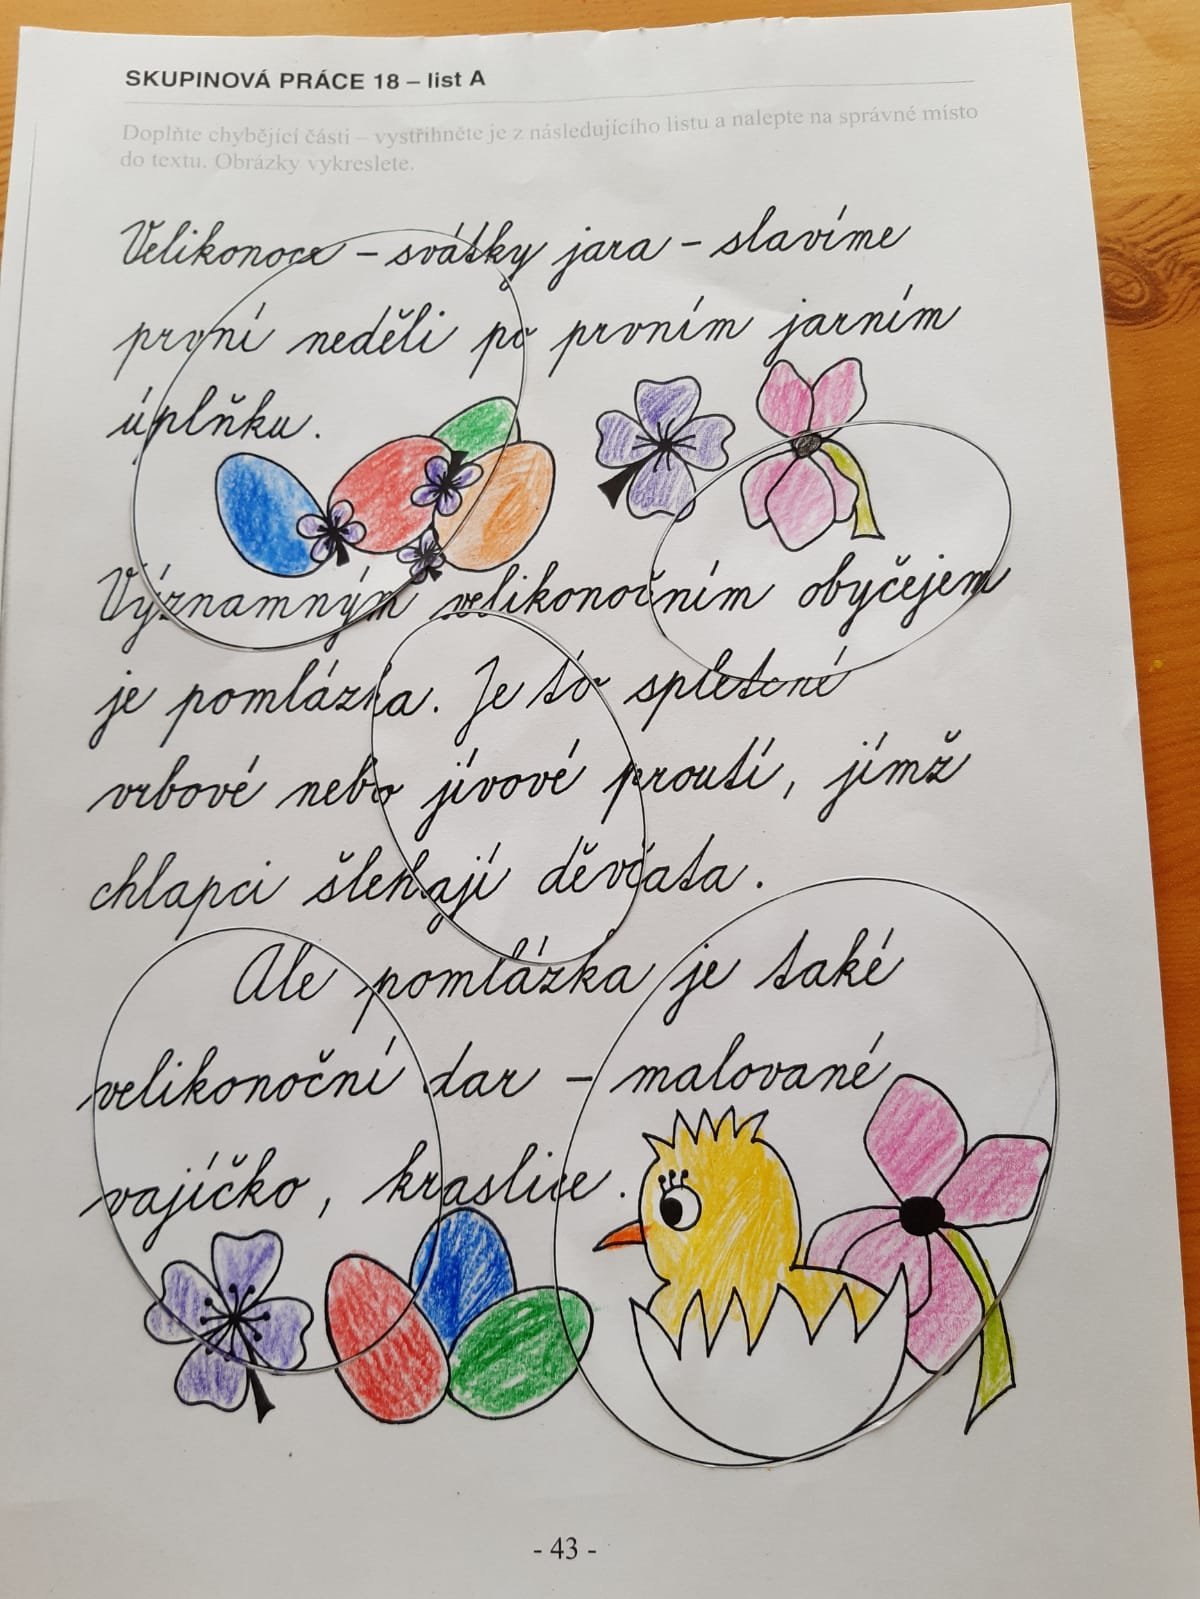 SKUPINOVÁ PRÁCE 18 – list A
Doplňte chybějící části – vystřihněte je z následujícího listu a nalepte na správné místo
do textu. Obrázky vykreslete.
Velikonoce – svátky jara – slavíme
první neděli po prvním jarním
úplňku.
Významným velikonočním obyčejem
je pomlázka. Je to spletené
vrbové nebo jívové proutí, jímž
chlapci šlehají děvčata.
Ale pomlázka je také
velikonoční dar – malované
vajíčko, kraslice.
- 43 -